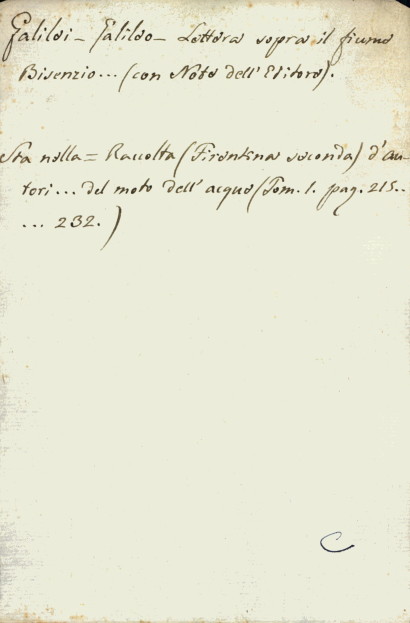 Galilei - Galileo - Lettera sopra il fiume
Bisenzio... (con Note dell'Editore).
Sta nella = Raccolta (Firentina seconda) d'au-
tori... del moto dell'acque (Tom. 1. pag. 215..
... 232.)
C